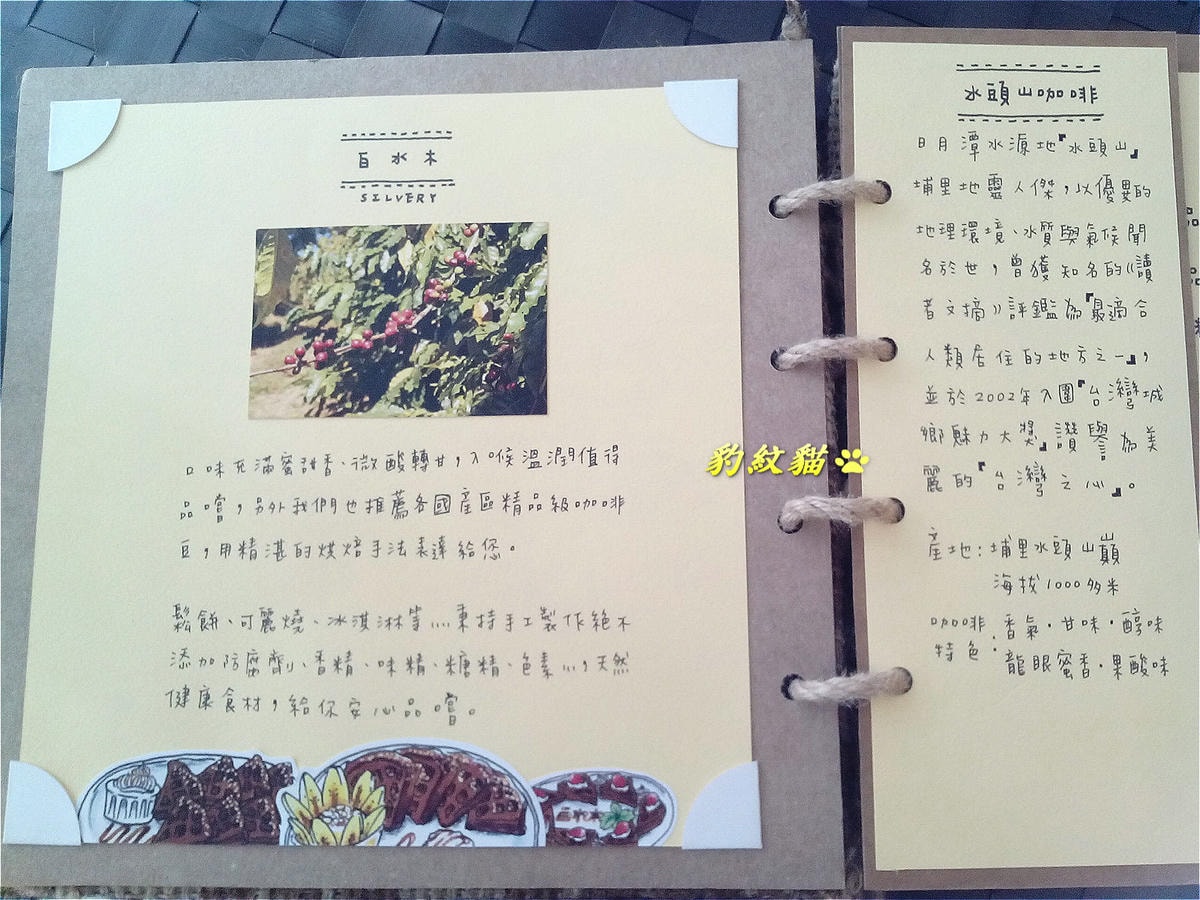 白水木
SILVERY
口味充滿蜜甜香、微酸轉甘，入喉溫潤值得
品嚐，另外我們也推薦各國產區精品級咖啡
豆，用精湛的烘焙手法表達給您。
鬆餅、可麗燒、冰淇淋等…秉持手工製作絕不
添加防腐劑、香精、味精、糖精、色素…，天然
健康食材，給你安心品嚐。
白水木
豹紋貓
水頭山咖啡
日月潭水源地『水頭山』
埔里地靈人傑，以優異的
地理環境、水質與氣候聞
名於世，曾獲知名的《讀
者文摘》評鑑為『最適合
人類居住的地方之一』，
並於2002年入圍『台灣城
鄉魅力大獎』讚譽為美
麗的『台灣之心』。
產地：埔里水頭山巔
海拔1000多米
咖啡特色：香氣．甘味．醇味
龍眼蜜香．果酸味